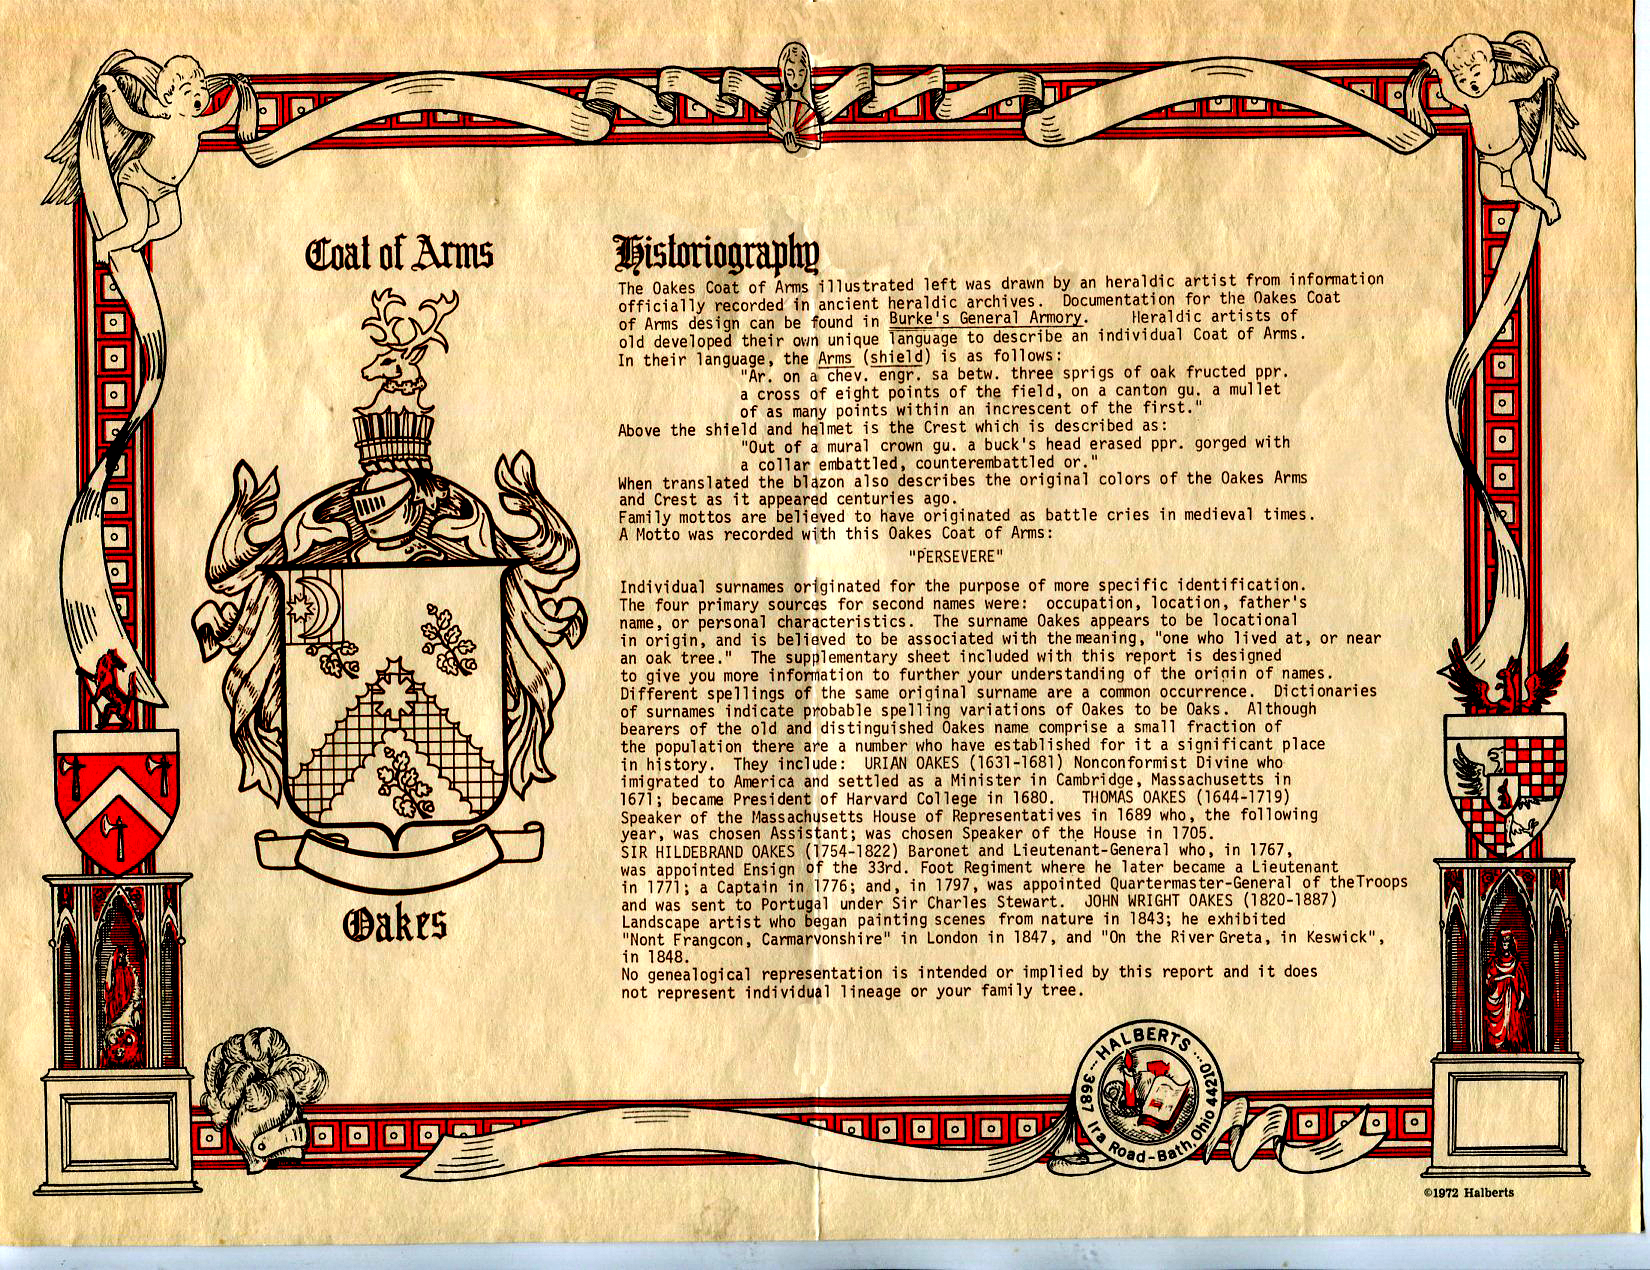 Coat of Arms
Oakes
Historiography
The Oakes Coat of Arms illustrated left was drawn by an heraldic artist from information
officially recorded in ancient heraldic archives. Documentation for the Oakes Coat
of Arms design can be found in Burke's General Armory. Heraldic artists of
old developed their own unique language to describe an individual Coat of Arms.
In their language, the Arms (shield) is as follows:
"Ar. on a chev. engr. sa betw. three sprigs of oak fructed ppr.
a cross of eight points of the field, on a canton gu. a mullet
of as many points within an increscent of the first."
Above the shield and helmet is the Crest which is described as:
"Out of a mural crown gu. a buck's head erased ppr. gorged with
a collar embattled, counterembattled or."
When translated the blazon also describes the original colors of the Oakes Arms
and Crest as it appeared centuries ago.
Family mottos are believed to have originated as battle cries in medieval times.
A Motto was recorded with this Oakes Coat of Arms:
"PERSEVERE"
Individual surnames originated for the purpose of more specific identification.
The four primary sources for second names were: occupation, location, father's
name, or personal characteristics. The surname Oakes appears to be locational
in origin, and is believed to be associated with the meaning, "one who lived at, or near
an oak tree." The supplementary sheet included with this report is designed
to give you more information to further your understanding of the origin of names.
Different spellings of the same original surname are a common occurrence. Dictionaries
of surnames indicate probable spelling variations of Oakes to be Oaks. Although
bearers of the old and distinguished Oakes name comprise a small fraction of
the population there are a number who have established for it a significant place
in history. They include: URIAN OAKES (1631-1681) Nonconformist Divine who
imigrated to America and settled as a Minister in Cambridge, Massachusetts in
1671; became President of Harvard College in 1680. THOMAS OAKES (1644-1719)
Speaker of the Massachusetts House of Representatives in 1689 who, the following
year, was chosen Assistant; was chosen Speaker of the House in 1705.
SIR HILDEBRAND OAKES (1754-1822) Baronet and Lieutenant-General who, in 1767,
was appointed Ensign of the 33rd. Foot Regiment where he later became a Lieutenant
in 1771; a Captain in 1776; and, in 1797, was appointed Quartermaster-General of theTroops
and was sent to Portugal under Sir Charles Stewart. JOHN WRIGHT OAKES (1820-1887)
Landscape artist who began painting scenes from nature in 1843; he exhibited
"Nont Frangcon, Carmarvonshire" in London in 1847, and "On the River Greta, in Keswick",
in 1848.
No genealogical representation is intended or implied by this report and it does
not represent individual lineage or your family tree.
HALBERTS
3687 Ira Road-Bath, Ohio 44210
©1972 Halberts